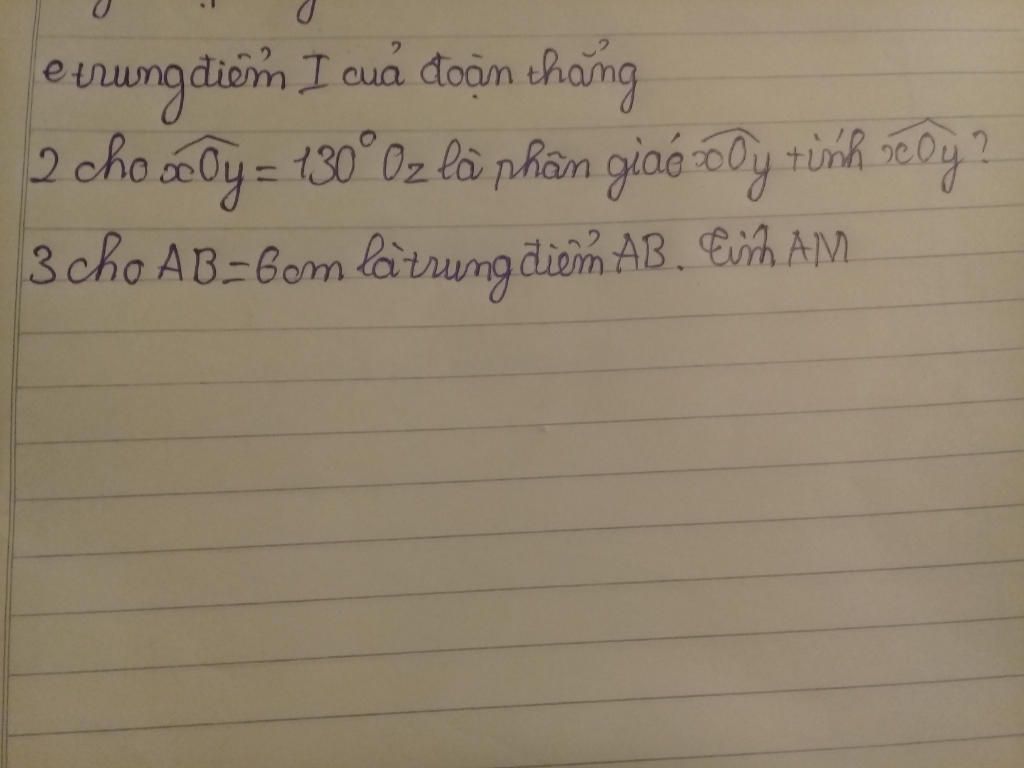 e trung điểm I cuả đoạn thẳng
2 cho xOy = 130° Oz là phân giaó xOy tính xOy?
3 cho AB = 6cm là trung điểm AB. Tính AM